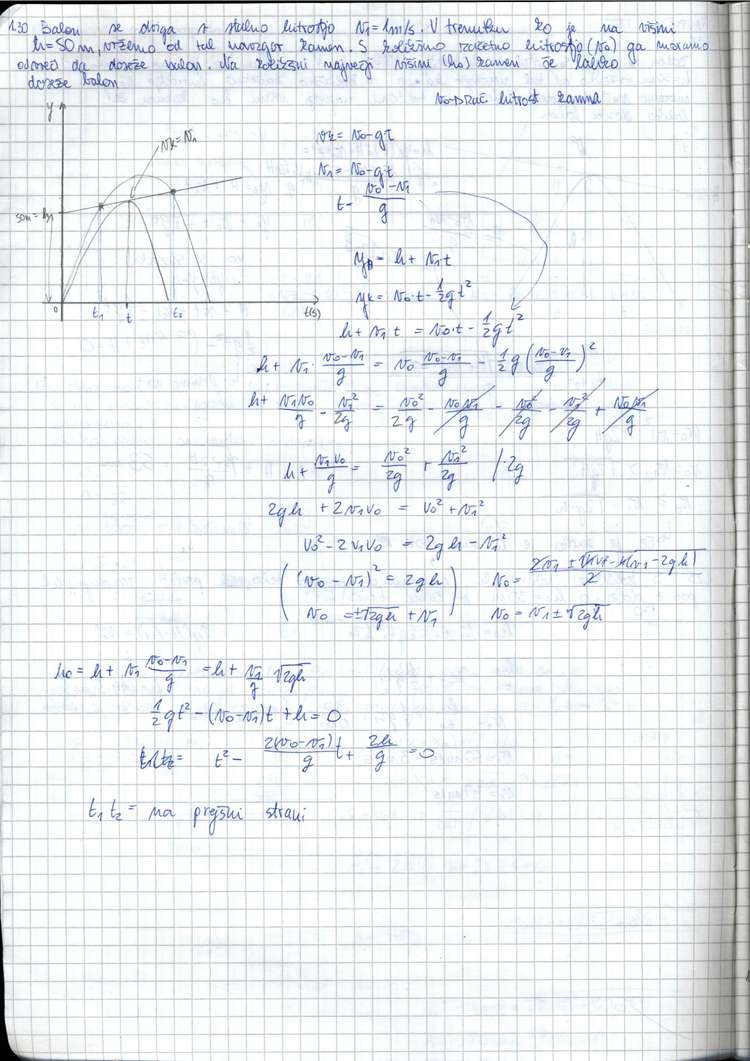 1.30 Balon se dviga s stalno hitrostjo v₁=1m/s. V trenutku ko je na višini
h=50m, vržemo od tal navzgor kamen. S kolikšno začetno hitrostjo (v₀) ga moramo
da doseže balon. Na kolikšni najmanjši višini (h₀) kamen še lahko
doseže balon
hitrost kamna
y
vk = v₁
50m = h
0
t₁ t t₂ t(s)
vk = v₀ - gt
v₁ = v₀ - gt
t = (v₀ - v₁)/g
yB = h + v₁t
yk = v₀·t - ½gt²
h + v₁t = v₀·t - ½gt²
h + v₁·(v₀-v₁)/g = v₀ (v₀-v₁)/g - ½g((v₀-v₁)/g)²
h + v₁v₀/g - v₁²/2g = v₀²/2g - v₀v₁/g - v₀²/2g - v₁²/2g + v₀v₁/g
h + v₁v₀/g = v₀²/2g + v₁²/2g /·2g
2gh + 2v₁v₀ = v₀² + v₁²
v₀² - 2v₁v₀ = 2gh - v₁²
((v₀ - v₁)² = 2gh
v₀ = ±√2gh + v₁)
v₀ = v₁ ± √2gh
h₀ = h + v₁ (v₀-v₁)/g = h + v₁/g √2gh
½gt² - (v₀-v₁)t + h = 0
t² - 2(v₀-v₁)t/g + 2h/g = 0
t₁ t₂ = na prejšni strani